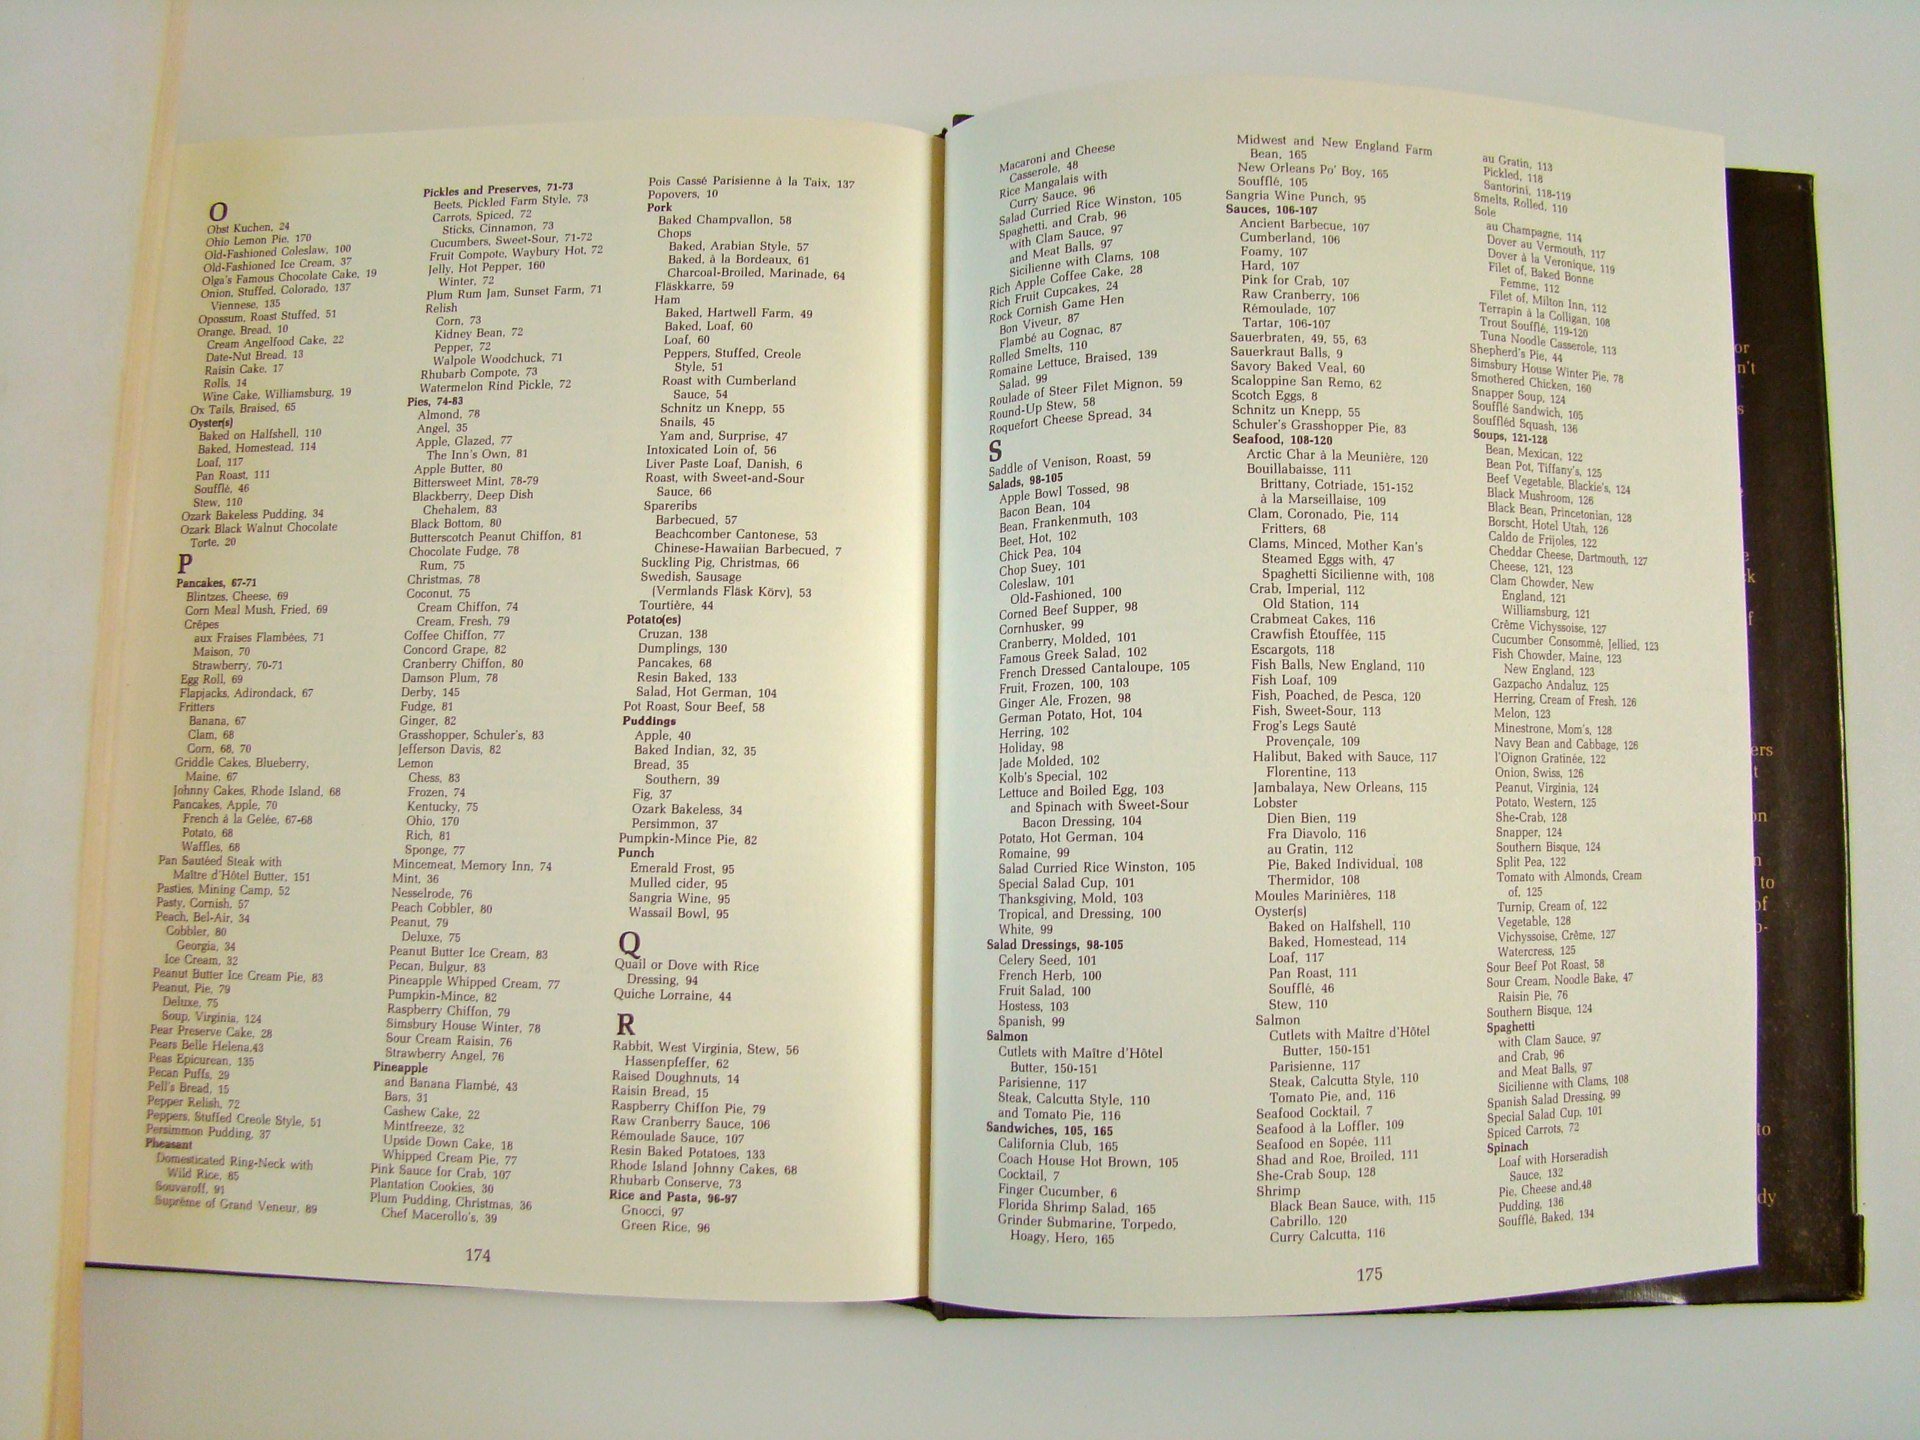 O
Obst Kuchen, 24
Ohio Lemon Pie, 170
Old-Fashioned Coleslaw, 100
Old-Fashioned Ice Cream, 37
Olga's Famous Chocolate Cake, 19
Onion, Stuffed, Colorado, 137
Viennese, 135
Opossum, Roast Stuffed, 51
Orange, Bread, 10
Cream Angelfood Cake, 22
Date-Nut Bread, 13
Raisin Cake, 17
Rolls, 14
Wine Cake, Williamsburg, 19
Ox Tails, Braised, 65
Oyster(s)
Baked on Halfshell, 110
Baked, Homestead, 114
Loaf, 117
Pan Roast, 111
Soufflé, 46
Stew, 110
Ozark Bakeless Pudding, 34
Ozark Black Walnut Chocolate
Torte, 20
P
Pancakes, 67-71
Blintzes, Cheese, 69
Corn Meal Mush, Fried, 69
Crêpes
aux Fraises Flambées, 71
Maison, 70
Strawberry, 70-71
Egg Roll, 69
Flapjacks, Adirondack, 67
Fritters
Banana, 67
Clam, 68
Corn, 68, 70
Griddle Cakes, Blueberry,
Maine, 67
Johnny Cakes, Rhode Island, 68
Pancakes, Apple, 70
French à la Gelée, 67-68
Potato, 68
Waffles, 68
Pan Sautéed Steak with
Maître d'Hôtel Butter, 151
Pasties, Mining Camp, 52
Pasty, Cornish, 57
Peach, Bel-Air, 34
Cobbler, 80
Georgia, 34
Ice Cream, 32
Peanut Butter Ice Cream Pie, 83
Peanut, Pie, 79
Deluxe, 75
Soup, Virginia, 124
Pear Preserve Cake, 28
Pears Belle Helena,43
Peas Epicurean, 135
Pecan Puffs, 29
Pell's Bread, 15
Pepper Relish, 72
Peppers, Stuffed Creole Style, 51
Persimmon Pudding, 37
Pheasant
Domesticated Ring-Neck with
Wild Rice, 85
Souvaroff, 91
Suprême of Grand Veneur, 89
Pickles and Preserves, 71-73
Beets, Pickled Farm Style, 73
Carrots, Spiced, 72
Sticks, Cinnamon, 73
Cucumbers, Sweet-Sour, 71-72
Fruit Compote, Waybury Hot, 72
Jelly, Hot Pepper, 160
Winter, 72
Plum Rum Jam, Sunset Farm, 71
Relish
Corn, 73
Kidney Bean, 72
Pepper, 72
Walpole Woodchuck, 71
Rhubarb Compote, 73
Watermelon Rind Pickle, 72
Pies, 74-83
Almond, 78
Angel, 35
Apple, Glazed, 77
The Inn's Own, 81
Apple Butter, 80
Bittersweet Mint, 78-79
Blackberry, Deep Dish
Chehalem, 83
Black Bottom, 80
Butterscotch Peanut Chiffon, 81
Chocolate Fudge, 78
Rum, 75
Christmas, 78
Coconut, 75
Cream Chiffon, 74
Cream, Fresh, 79
Coffee Chiffon, 77
Concord Grape, 82
Cranberry Chiffon, 80
Damson Plum, 78
Derby, 145
Fudge, 81
Ginger, 82
Grasshopper, Schuler's, 83
Jefferson Davis, 82
Lemon
Chess, 83
Frozen, 74
Kentucky, 75
Ohio, 170
Rich, 81
Sponge, 77
Mincemeat, Memory Inn, 74
Mint, 36
Nesselrode, 76
Peach Cobbler, 80
Peanut, 79
Deluxe, 75
Peanut Butter Ice Cream, 83
Pecan, Bulgur, 83
Pineapple Whipped Cream, 77
Pumpkin-Mince, 82
Raspberry Chiffon, 79
Simsbury House Winter, 78
Sour Cream Raisin, 76
Strawberry Angel, 76
Pineapple
and Banana Flambé, 43
Bars, 31
Cashew Cake, 22
Mintfreeze, 32
Upside Down Cake, 18
Whipped Cream Pie, 77
Pink Sauce for Crab, 107
Plantation Cookies, 30
Plum Pudding, Christmas, 36
Chef Macerollo's, 39
Pois Cassé Parisienne à la Taix, 137
Popovers, 10
Pork
Baked Champvallon, 58
Chops
Baked, Arabian Style, 57
Baked, à la Bordeaux, 61
Charcoal-Broiled, Marinade, 64
Fläskkarre, 59
Ham
Baked, Hartwell Farm, 49
Baked, Loaf, 60
Loaf, 60
Peppers, Stuffed, Creole
Style, 51
Roast with Cumberland
Sauce, 54
Schnitz un Knepp, 55
Snails, 45
Yam and, Surprise, 47
Intoxicated Loin of, 56
Liver Paste Loaf, Danish, 6
Roast, with Sweet-and-Sour
Sauce, 66
Spareribs
Barbecued, 57
Beachcomber Cantonese, 53
Chinese-Hawaiian Barbecued, 7
Suckling Pig, Christmas, 66
Swedish, Sausage
(Vermlands Fläsk Körv), 53
Tourtière, 44
Potato(es)
Cruzan, 138
Dumplings, 130
Pancakes, 68
Resin Baked, 133
Salad, Hot German, 104
Pot Roast, Sour Beef, 58
Puddings
Apple, 40
Baked Indian, 32, 35
Bread, 35
Southern, 39
Fig, 37
Ozark Bakeless, 34
Persimmon, 37
Pumpkin-Mince Pie, 82
Punch
Emerald Frost, 95
Mulled cider, 95
Sangria Wine, 95
Wassail Bowl, 95
Q
Quail or Dove with Rice
Dressing, 94
Quiche Lorraine, 44
R
Rabbit, West Virginia, Stew, 56
Hassenpfeffer, 62
Raised Doughnuts, 14
Raisin Bread, 15
Raspberry Chiffon Pie, 79
Raw Cranberry Sauce, 106
Rémoulade Sauce, 107
Resin Baked Potatoes, 133
Rhode Island Johnny Cakes, 68
Rhubarb Conserve, 73
Rice and Pasta, 96-97
Gnocci, 97
Green Rice, 96
174
Macaroni and Cheese
Casserole, 48
Rice Mangalais with
Curry Sauce, 96
Salad Curried Rice Winston, 105
Spaghetti, and Crab, 96
with Clam Sauce, 97
and Meat Balls, 97
Sicilienne with Clams, 108
Rich Apple Coffee Cake, 28
Rich Fruit Cupcakes, 24
Rock Cornish Game Hen
Bon Viveur, 87
Flambé au Cognac, 87
Rolled Smelts, 110
Romaine Lettuce, Braised, 139
Salad, 99
Roulade of Steer Filet Mignon, 59
Round-Up Stew, 58
Roquefort Cheese Spread, 34
S
Saddle of Venison, Roast, 59
Salads, 98-105
Apple Bowl Tossed, 98
Bacon Bean, 104
Bean, Frankenmuth, 103
Beet, Hot, 102
Chick Pea, 104
Chop Suey, 101
Coleslaw, 101
Old-Fashioned, 100
Corned Beef Supper, 98
Cornhusker, 99
Cranberry, Molded, 101
Famous Greek Salad, 102
French Dressed Cantaloupe, 105
Fruit, Frozen, 100, 103
Ginger Ale, Frozen, 98
German Potato, Hot, 104
Herring, 102
Holiday, 98
Jade Molded, 102
Kolb's Special, 102
Lettuce and Boiled Egg, 103
and Spinach with Sweet-Sour
Bacon Dressing, 104
Potato, Hot German, 104
Romaine, 99
Salad Curried Rice Winston, 105
Special Salad Cup, 101
Thanksgiving, Mold, 103
Tropical, and Dressing, 100
White, 99
Salad Dressings, 98-105
Celery Seed, 101
French Herb, 100
Fruit Salad, 100
Hostess, 103
Spanish, 99
Salmon
Cutlets with Maître d'Hôtel
Butter, 150-151
Parisienne, 117
Steak, Calcutta Style, 110
and Tomato Pie, 116
Sandwiches, 105, 165
California Club, 165
Coach House Hot Brown, 105
Cocktail, 7
Finger Cucumber, 6
Florida Shrimp Salad, 165
Grinder Submarine, Torpedo,
Hoagy, Hero, 165
Midwest and New England Farm
Bean, 165
New Orleans Po' Boy, 165
Soufflé, 105
Sangria Wine Punch, 95
Sauces, 106-107
Ancient Barbecue, 107
Cumberland, 106
Foamy, 107
Hard, 107
Pink for Crab, 107
Raw Cranberry, 106
Rémoulade, 107
Tartar, 106-107
Sauerbraten, 49, 55, 63
Sauerkraut Balls, 9
Savory Baked Veal, 60
Scaloppine San Remo, 62
Scotch Eggs, 8
Schnitz un Knepp, 55
Schuler's Grasshopper Pie, 83
Seafood, 108-120
Arctic Char à la Meunière, 120
Bouillabaisse, 111
Brittany, Cotriade, 151-152
à la Marseillaise, 109
Clam, Coronado, Pie, 114
Fritters, 68
Clams, Minced, Mother Kan's
Steamed Eggs with, 47
Spaghetti Sicilienne with, 108
Crab, Imperial, 112
Old Station, 114
Crabmeat Cakes, 116
Crawfish Étouffée, 115
Escargots, 118
Fish Balls, New England, 110
Fish Loaf, 109
Fish, Poached, de Pesca, 120
Fish, Sweet-Sour, 113
Frog's Legs Sauté
Provençale, 109
Halibut, Baked with Sauce, 117
Florentine, 113
Jambalaya, New Orleans, 115
Lobster
Dien Bien, 119
Fra Diavolo, 116
au Gratin, 112
Pie, Baked Individual, 108
Thermidor, 108
Moules Marinières, 118
Oyster(s)
Baked on Halfshell, 110
Baked, Homestead, 114
Loaf, 117
Pan Roast, 111
Soufflé, 46
Stew, 110
Salmon
Cutlets with Maître d'Hôtel
Butter, 150-151
Parisienne, 117
Steak, Calcutta Style, 110
Tomato Pie, and, 116
Seafood Cocktail, 7
Seafood à la Loffler, 109
Seafood en Sopée, 111
Shad and Roe, Broiled, 111
She-Crab Soup, 128
Shrimp
Black Bean Sauce, with, 115
Cabrillo, 120
Curry Calcutta, 116
au Gratin, 113
Pickled, 118
Santorini, 118-119
Smelts, Rolled, 110
Sole
au Champagne, 114
Dover au Vermouth, 117
Dover à la Veronique, 119
Filet of, Baked Bonne
Femme, 112
Filet of, Milton Inn, 112
Terrapin à la Colligan, 108
Trout Soufflé, 119-120
Tuna Noodle Casserole, 113
Shepherd's Pie, 44
Simsbury House Winter Pie, 78
Smothered Chicken, 160
Snapper Soup, 124
Soufflé Sandwich, 105
Souffléd Squash, 136
Soups, 121-128
Bean, Mexican, 122
Bean Pot, Tiffany's, 125
Beef Vegetable, Blackie's, 124
Black Mushroom, 126
Black Bean, Princetonian, 128
Borscht, Hotel Utah, 126
Caldo de Frijoles, 122
Cheddar Cheese, Dartmouth, 127
Cheese, 121, 123
Clam Chowder, New
England, 121
Williamsburg, 121
Crême Vichyssoise, 127
Cucumber Consommé, Jellied, 123
Fish Chowder, Maine, 123
New England, 123
Gazpacho Andaluz, 125
Herring, Cream of Fresh, 126
Melon, 123
Minestrone, Mom's, 128
Navy Bean and Cabbage, 126
l'Oignon Gratinée, 122
Onion, Swiss, 126
Peanut, Virginia, 124
Potato, Western, 125
She-Crab, 128
Snapper, 124
Southern Bisque, 124
Split Pea, 122
Tomato with Almonds, Cream
of, 125
Turnip, Cream of, 122
Vegetable, 128
Vichyssoise, Crême, 127
Watercress, 125
Sour Beef Pot Roast, 58
Sour Cream, Noodle Bake, 47
Raisin Pie, 76
Southern Bisque, 124
Spaghetti
with Clam Sauce, 97
and Crab, 96
and Meat Balls, 97
Sicilienne with Clams, 108
Spanish Salad Dressing, 99
Special Salad Cup, 101
Spiced Carrots, 72
Spinach
Loaf with Horseradish
Sauce, 132
Pie, Cheese and,48
Pudding, 136
Soufflé, Baked, 134
175